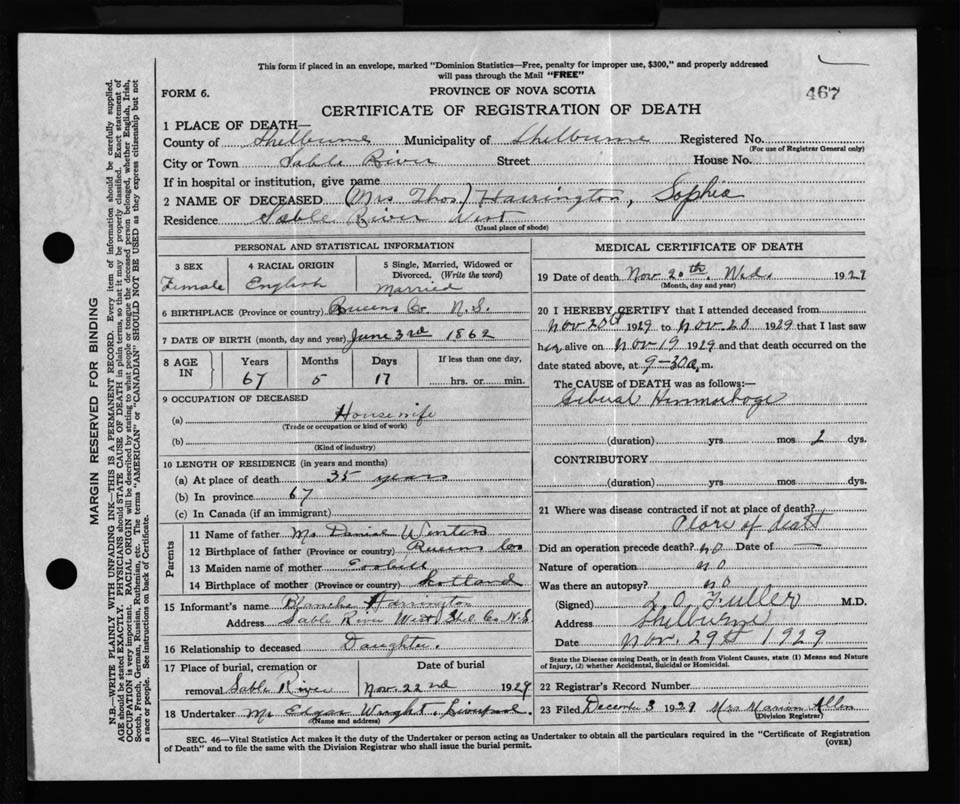 This form if placed in an envelope, marked "Dominion Statistics—Free, penalty for improper use, $300," and properly addressed
will pass through the Mail "FREE"
FORM 6.
PROVINCE OF NOVA SCOTIA
467
CERTIFICATE OF REGISTRATION OF DEATH
1 PLACE OF DEATH—
County of Shelburne Municipality of Shelburne Registered No.
(For use of Registrar General only)
City or Town Sable River Street House No.
If in hospital or institution, give name
2 NAME OF DECEASED (Mrs Thos.) Harrington, Sophia
Residence Sable River West
(Usual place of abode)
PERSONAL AND STATISTICAL INFORMATION
3 SEX 4 RACIAL ORIGIN 5 Single, Married, Widowed or
Divorced. (Write the word)
Female English Married
6 BIRTHPLACE (Province or country) Queens Co N.S.
7 DATE OF BIRTH (month, day and year) June 3rd 1862
8 AGE IN Years Months Days If less than one day,
67 5 17 hrs. or min.
9 OCCUPATION OF DECEASED
(a) Housewife
(Trade or occupation or kind of work)
(b)
(Kind of industry)
10 LENGTH OF RESIDENCE (in years and months)
(a) At place of death 35 years
(b) In province 67
(c) In Canada (if an immigrant)
Parents
11 Name of father Mr Daniel Winters
12 Birthplace of father (Province or country) Queens Co
13 Maiden name of mother
14 Birthplace of mother (Province or country) Scotland
15 Informant's name Blanche Harrington
Address Sable River West Shel Co N.S
16 Relationship to deceased Daughter.
17 Place of burial, cremation or Date of burial
removal Sable River Nov 22nd 1929
18 Undertaker Mr Edgar Wright, Liverpool
(Name and address)
MEDICAL CERTIFICATE OF DEATH
19 Date of death Nov 20th, Wed. 1929
(Month, day and year)
20 I HEREBY CERTIFY that I attended deceased from
Nov 20 1929 to Nov 20 1929 that I last saw
her alive on Nov 19 1929 and that death occurred on the
date stated above, at 9-30a.m.
The CAUSE OF DEATH was as follows:—
Cibural Himmorhoge
(duration) yrs mos 2 dys.
CONTRIBUTORY
(duration) yrs. mos. dys.
21 Where was disease contracted if not at place of death?
Place of death
Did an operation precede death? no Date of —
Nature of operation no
Was there an autopsy? no
(Signed) L O. Fuller M.D.
Address Shelburne
Date Nov. 29th 1929
State the Disease causing Death, or in death from Violent Causes, state (1) Means and Nature
of Injury, (2) whether Accidental, Suicidal or Homicidal.
22 Registrar's Record Number
23 Filed December 3 1929 Mrs Marion Allen
(Division Registrar)
SEC. 46—Vital Statistics Act makes it the duty of the Undertaker or person acting as Undertaker to obtain all the particulars required in the "Certificate of Registration
of Death" and to file the same with the Division Registrar who shall issue the burial permit.
(OVER)
MARGIN RESERVED FOR BINDING
N.B.—WRITE PLAINLY WITH UNFADING INK—THIS IS A PERMANENT RECORD. Every item of information should be carefully supplied.
AGE should be stated EXACTLY. PHYSICIANS should STATE CAUSE OF DEATH in plain terms, so that it may be properly classified. Exact statement of
OCCUPATION is very important. RACIAL ORIGIN will be described by stating to what people or tongue the deceased person belonged, whether English, Irish,
Scotch, French, German, Russian, Ruthenian, etc. The terms "AMERICAN" or "CANADIAN" SHOULD NOT BE USED as they express citizenship but not
a race or people. See instructions on back of Certificate.